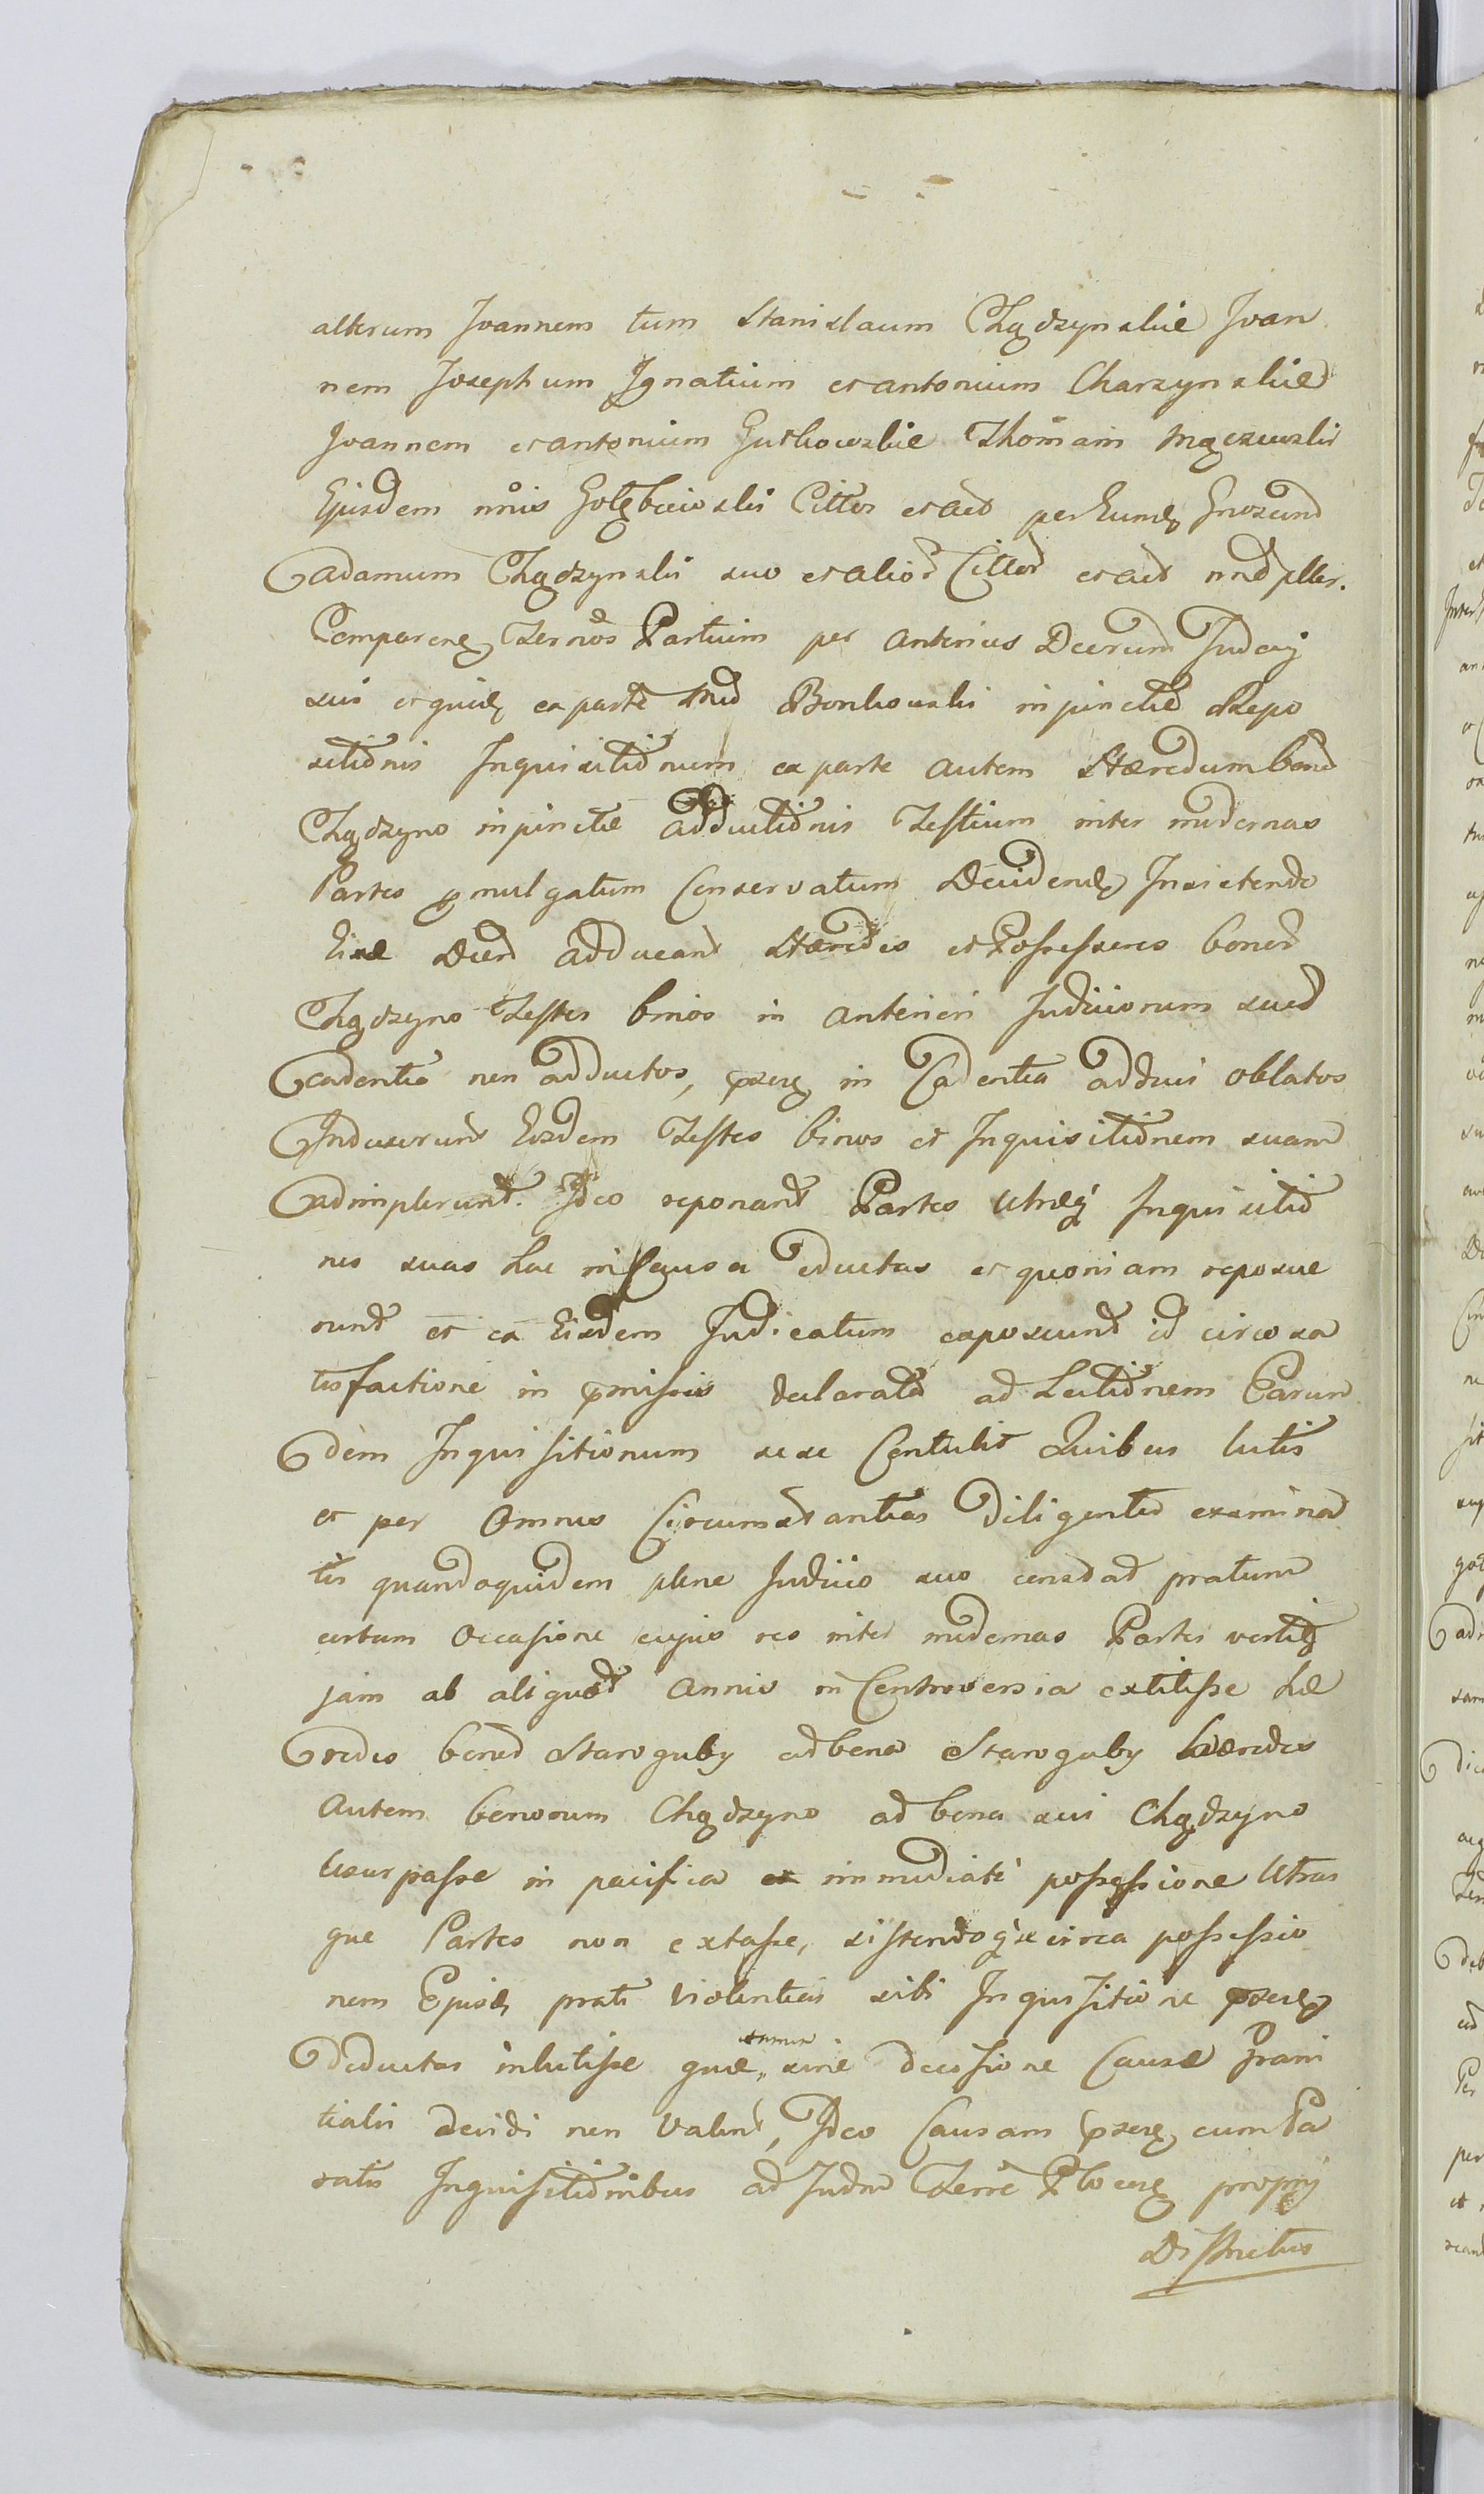 alterum Joannem tum Stanislaum Chądzynskie Joan
nem Josephum Ignatium et antonium Charzynskie
Joannem et antonium Gutkowskie Thomam Mączewski
Ejusdem nōis Gołębiewski Cittos et act per Eund Gnosum
adamum Chądzynski suo et alior Cittor et act nnē plter.
Comparenę Ternos Partium per anterius Decrum Judcij
sui et quidę ex parte Mnd Bonkowski injunctæ Repo
sitionis Inquisitionum ex parte autem Hæredum bonor
Chądzyno injunctæ adductionis Testium inter modernas
Partes pmulgatum Conservatum Decidendę Insistendo
Eidē Decr adducant Hæredes et Possessores bonor
Chądzyno Testes binos in anteriori Judiciorum suor
Cadentia non adductos, pseng in Cadentia adduci oblatos
Induxerunt Eosdem Testes binos et Inquisitionem suam
adimplerunt. Ideo reponant Partes Utræq Inquisitio
nes suas hac in Causa eductas et quoniam reposue
runt et eā Eisdem Judicatum exposcunt id circo sa
tisfactione in pmissis declarata ad Lectionem Earun
dem Inquisitionum sese Contulit Quibus lectis
et per Omnes Circumstantias diligenter examina
tis quandoquidem plene Judicio suo constat pratum
certum Occasione cujus res inter modernas Partes vertitę
jam ab aliquot annis in Controversia extitisse hæ
redes bonor Staroguby ad bona Staroguby hæredes
autem bonorum Chądzyno ad bona sui Chądzyno
Usurpasse in pacifica et immediate possessione Utras
que Partes non extasse, sistendoq se circa possessio
nem Ejusdę prati violentias sibi Inquisitione pseng
deductas intulisse quæ tamen sine decisione Causæ Grani
tialis decidi non Valent, Ideo Causam pseng cum Pa
ratis Inquisitionibus ad Judm Terrē Plocenę proprij
Districtus